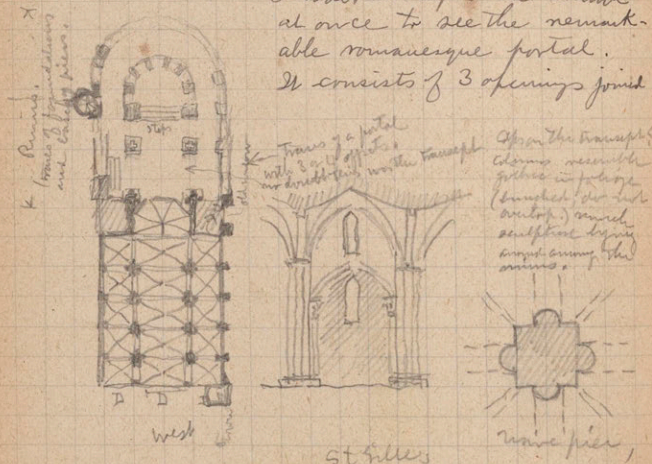 at once to see the remark-
able romanesque portal.
It consists of 3 openings joined
Ruins.
traces of foundations
and bases of piers.
steps
Traces of a portal
with 3 offsets.
no doubt the transept
Caps on the transept
columns resemble
gothic in foliage
do not
overlap) much
sculpture lying
around among the
ruins.
west
St Gilles
nave pier,